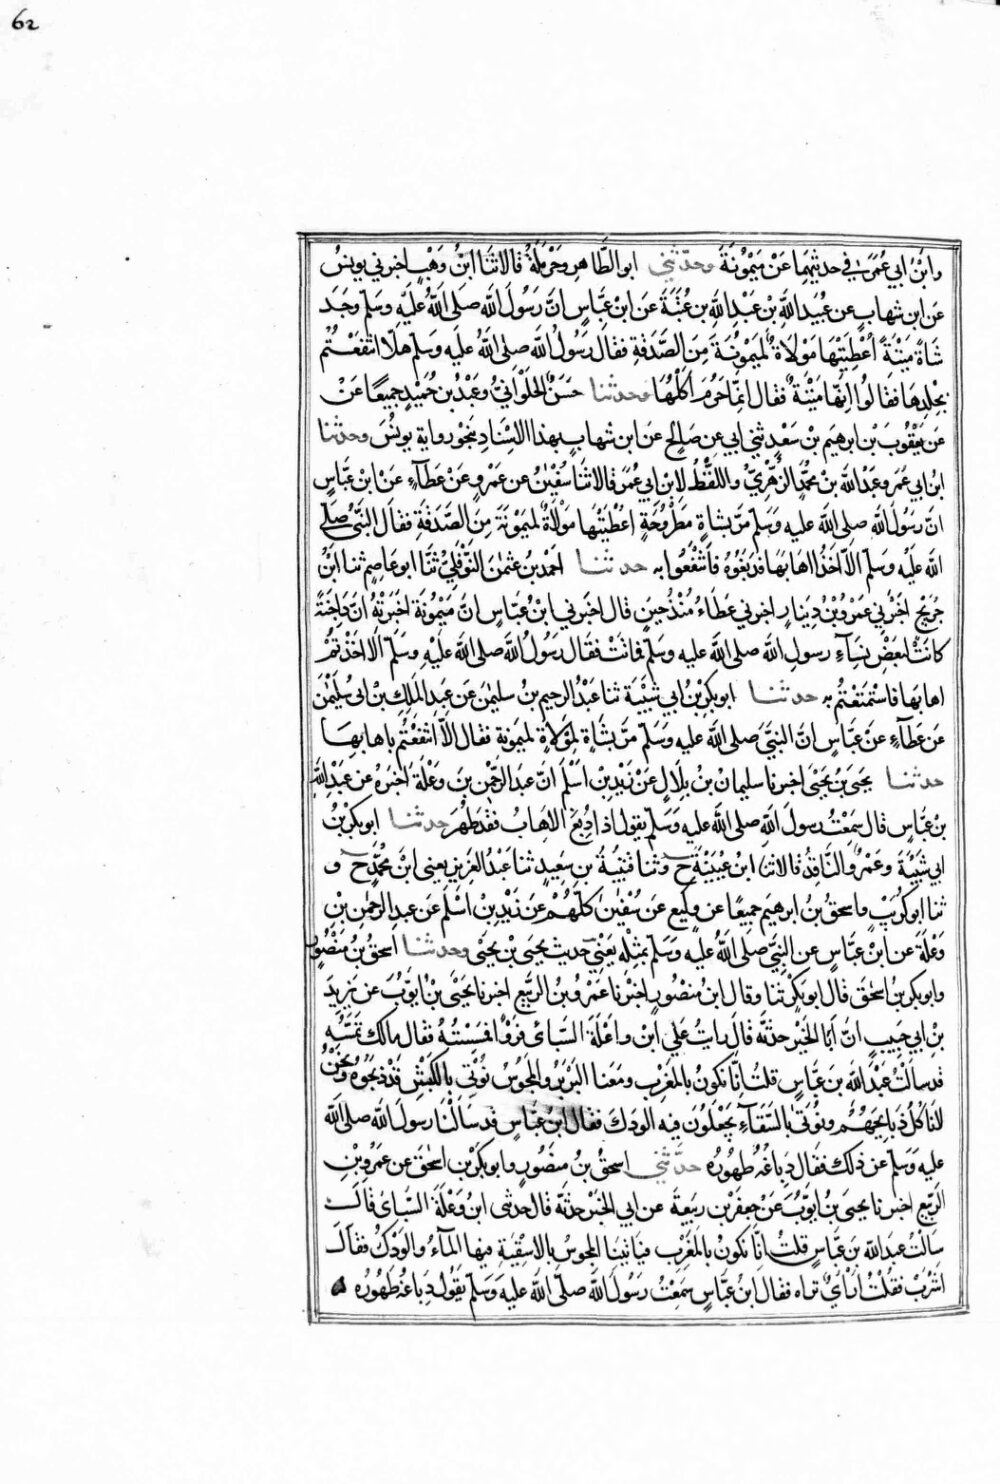 62
وابن ابي عمر في حديثهما عن ميمونة وحدثني ابو الطاهر وحرملة قالا ثنا ابن وهب اخبرني يونس
عن ابن شهاب عن عبيد الله بن عبد الله بن عتبة عن ابن عباس ان رسول الله صلى الله عليه وسلم وجد
شاة ميتة اعطيتها مولاة لميمونة من الصدقة فقال رسول الله صلى الله عليه وسلم هلا انتفعتم
بجلدها فقالوا انها ميتة فقال انما حرم اكلها وحدثنا حسن الحلواني وعبد بن حميد جميعا عن
عن يعقوب بن ابرهيم بن سعد ثني ابي عن صالح عن ابن شهاب بهذا الاسناد بنحو رواية يونس وحدثنا
ابن ابي عمر وعبد الله بن محمد الزهري واللفظ لابن ابي عمر قالا ثنا سفين عن عمرو عن عطآء عن ابن عباس
ان رسول الله صلى الله عليه وسلم مر بشاة مطروحة اعطيتها مولاة لميمونة من الصدقة فقال النبي صلى
الله عليه وسلم الا اخذوا اهابها فدبغوه فانتفعوا به حدثنا احمد بن عثمن النوفلي ثنا ابو عاصم ثنا ابن
جريج اخبرني عمرو بن دينار اخبرني عطاء منذ حين قال اخبرني ابن عباس ان ميمونة اخبرته ان داجنة
كانت لبعض نسآء رسول الله صلى الله عليه وسلم فماتت فقال رسول الله صلى الله عليه وسلم الا اخذتم
اهابها فاستمتعتم به حدثنا ابو بكر بن ابي شيبة ثنا عبد الرحيم بن سليمن عن عبد الملك بن ابي سليمن
عن عطآء عن عباس ان النبي صلى الله عليه وسلم مر بشاة لمولاة لميمونة فقال الا انتفعتم باهابها
حدثنا يحيى بن يحيى اخبرنا سليمان بن بلال عن زيد بن اسلم ان عبد الرحمن بن وعلة اخبره عن عبد الله
بن عباس قال سمعت رسول الله صلى الله عليه وسلم يقول اذا دبغ الاهاب فقد طهر حدثنا ابو بكر بن
ابي شيبة وعمرو الناقد قالا ثنا ابن عيينة ح وثنا قتيبة بن سعيد ثنا عبد العزيز يعني ابن محمد ح و
ثنا ابو كريب واسحق بن ابرهيم جميعا عن وكيع عن سفين كلهم عن زيد بن اسلم عن عبد الرحمن بن
وعلة عن ابن عباس عن النبي صلى الله عليه وسلم بمثله يعني حديث يحيى بن يحيى وحدثنا اسحق بن منصور
وابو بكر بن اسحق قال ابو بكر ثنا وقال ابن منصور اخبرنا عمرو بن الربيع اخبرنا يحيى بن ايوب عن يزيد
بن ابي حبيب ان ابا الخير حدثه قال رايت علي ابن واعلة السبائي فروا فمسسته فقال مالك تمسه
قد سالت عبد الله بن عباس قلت انا نكون بالمغرب ومعنا البربر والمجوس نؤتى بالكبش قد ذبحوه ونحن
لا ناكل ذبايحهم ونؤتى بالسقآء يجعلون فيه الودك فقال ابن عباس قد سالنا رسول الله صلى الله
عليه وسلم عن ذلك فقال دباغه طهوره حدثني اسحق بن منصور وابو بكر بن اسحق عن عمرو بن
الربيع اخبرنا يحيى بن ايوب عن جعفر بن ربيعة عن ابي الخير حدثه قال حدثني ابن وعلة السبائي قال
سالت عبد الله بن عباس قلت انا نكون بالمغرب فياتينا المجوس بالاسقية فيها المآء والودك فقال
اشرب فقلت اراي تراه فقال ابن عباس سمعت رسول الله صلى الله عليه وسلم يقول دباغه طهوره